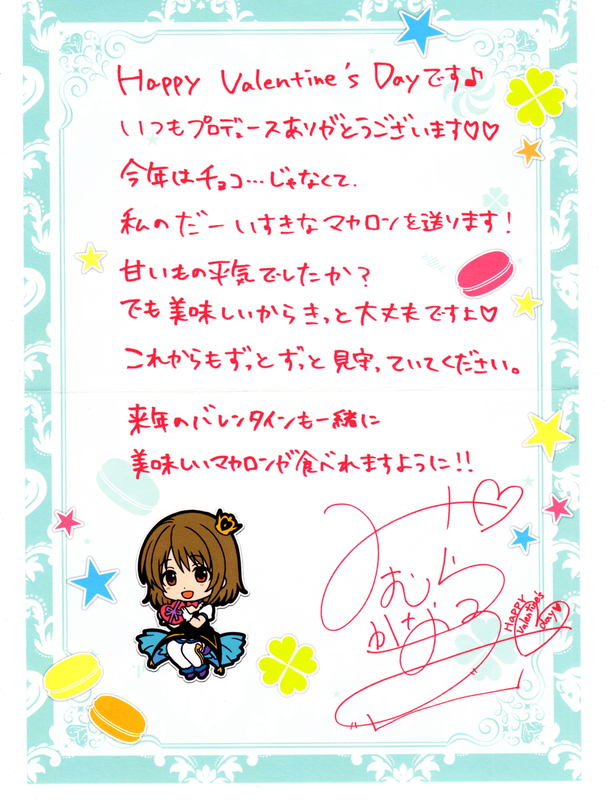 Happy Valentine's Dayです♪
いつもプロデュースありがとうございます♡♡
今年はチョコ…じゃなくて、
私のだーいすきなマカロンを送ります！
甘いもの平気でしたか？
でも美味しいからきっと大丈夫ですよ♡
これからもずっとずっと見守っていてください。
来年のバレンタインも一緒に
美味しいマカロンが食べれますように!!
むら
かなる
Happy
Valentine's
day♥